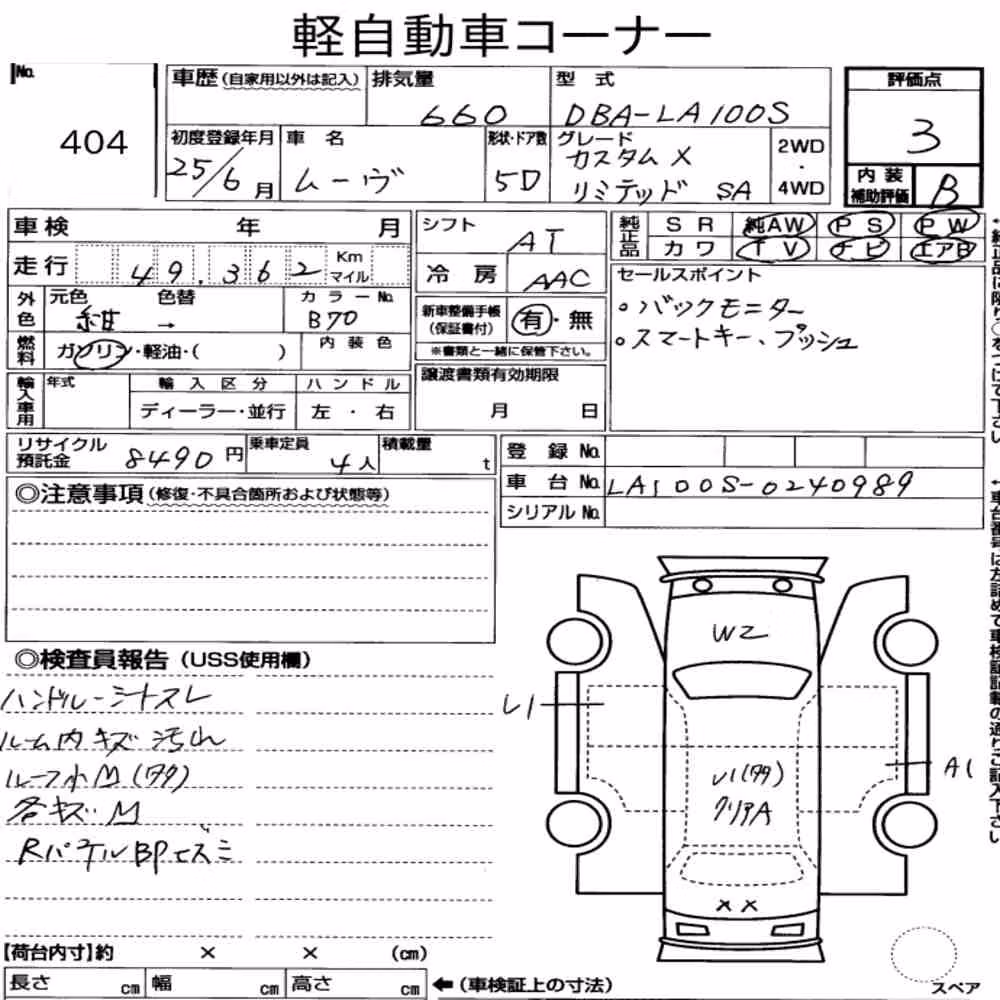 軽自動車コーナー
No.
404
車歴(自家用以外は記入)
排気量
660
型 式
DBA-LA100S
評価点
3
内装補助評価
B
初度登録年月
25/6月
車 名
ムーヴ
形状・ドア数
5D
グレード
カスタム X
リミテッド SA
2WD
・
4WD
車検 年 月
走行 49.362 Km マイル
シフト
AT
冷 房
AAC
純正品
S R 純AW P S P W
カ ワ T V ナビ エアB
外色
元色 色替
紺 →
カラーNo.
B70
燃料
ガソリン・軽油・( )
内 装 色
新車整備手帳
(保証書付)
有・無
※書類と一緒に保管下さい。
セールスポイント
○バックモニター
○スマートキー、プッシュ
輸入車用
年式
輸 入 区 分
ディーラー・並行
ハ ン ド ル
左 ・ 右
譲渡書類有効期限
月 日
リサイクル預託金
8490円
乗車定員
4人
積載量
t
登 録 No.
車 台 No. LA100S-0240989
シリアルNo.
◎注意事項(修復・不具合箇所および状態等)
◎検査員報告(USS使用欄)
ハンドルーシートスレ
ルーム内キズ汚れ
ルーフ小凹(タタ)
各キズ凹
RパネルBPヒズミ
W2
レ1
レ1(タタ)
クリアA
A1
××
【荷台内寸】約 × × (cm)
長さ cm 幅 cm 高さ cm
←(車検証上の寸法)
スペア